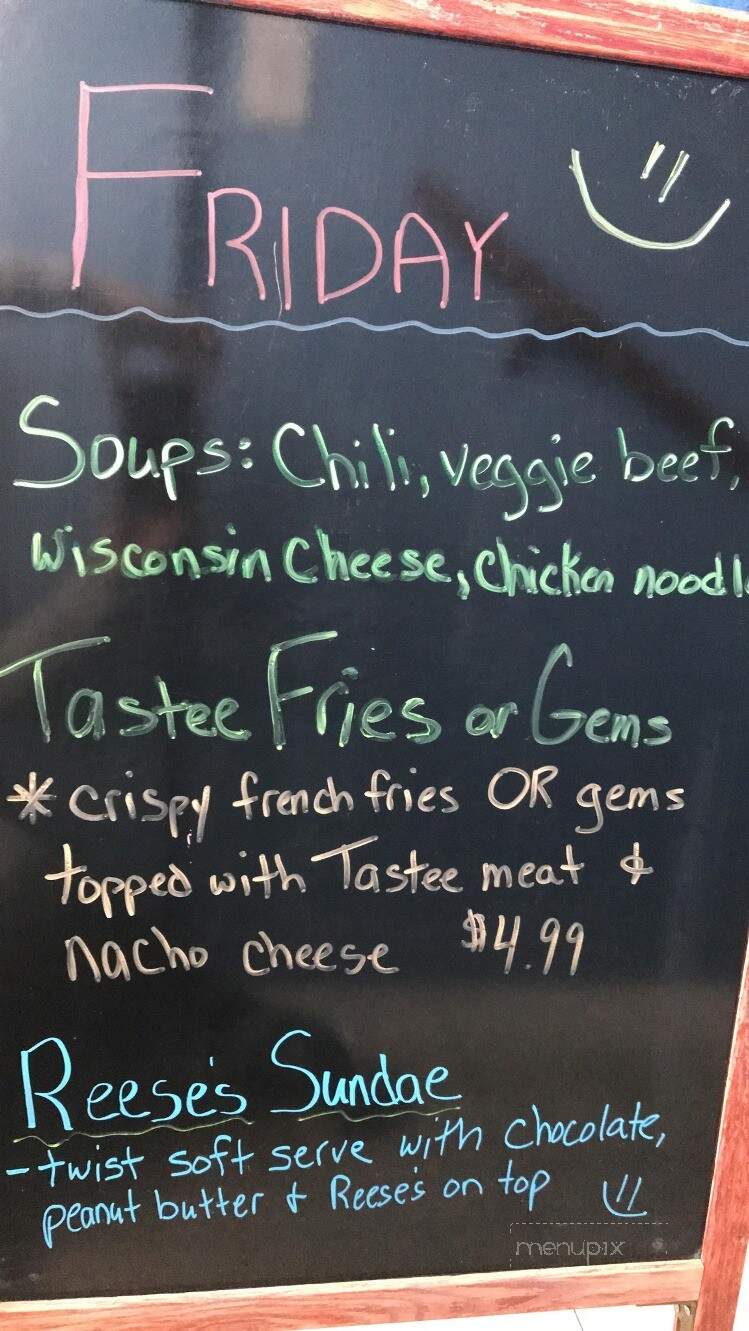 FRIDAY
Soups: Chili, veggie beef,
Wisconsin Cheese, Chicken noodle
Tastee Fries or Gems
* crispy french fries OR gems
topped with Tastee meat &
nacho cheese $4.99
Reese's Sundae
- twist soft serve with chocolate,
peanut butter & Reese's on top
menupix